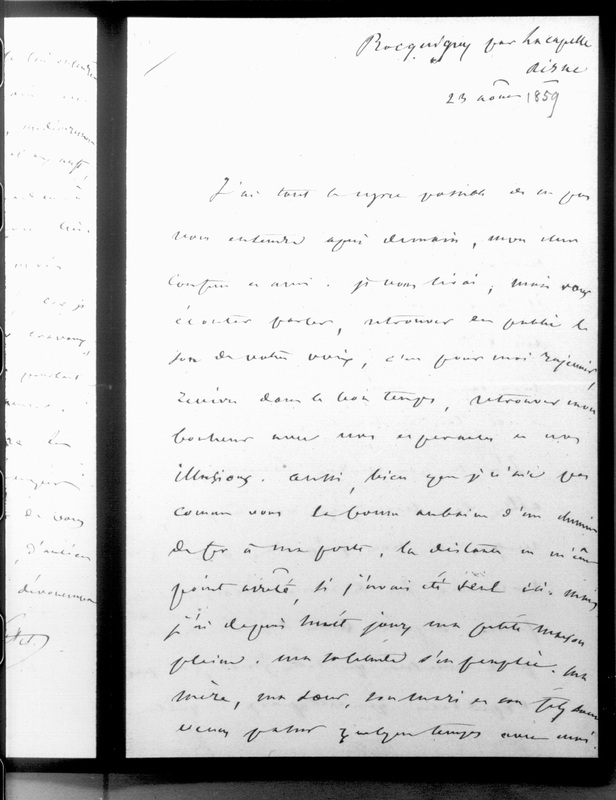 Rocquigny par La Capelle
Aisne
23 août 1859
J'ai tout le regret possible de ne pas
vous entendre après demain, mon cher
Confrère et ami. je vous lirai, mais vous
écouter parler, retrouver en public le
son de votre voix, c'est pour moi rajeunir,
revivre dans le bon temps, retrouver mon
bonheur avec nos espérances et nos
illusions. aussi, bien que je n'aie pas
comme vous la bonne aubaine d'un chemin
de fer à ma porte, la distance ne m'eût
point arrêté, si j'avais été seul ici. mais
j'ai depuis huit jours ma petite maison
pleine. ma solitude s'est peuplée. ma
mère, ma sœur, son mari et son fils sont
venus passer quelque temps avec moi.